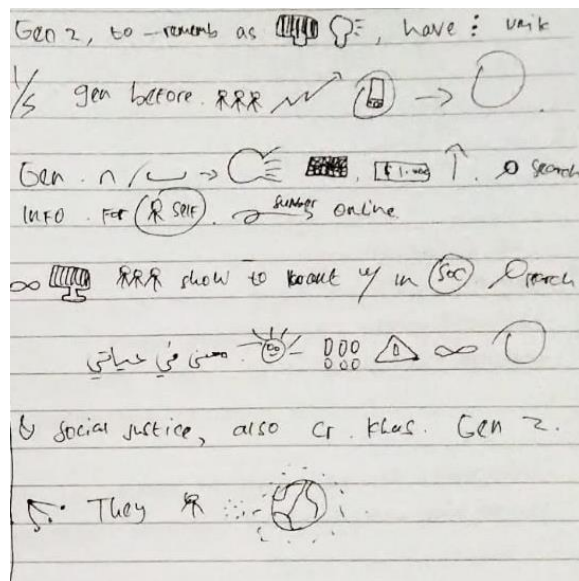 Gen 2, to - rememb as , have : unik
gen before.
Gen . n / → $ 1.000 ↑ . search
INFO . For SELF . sumber online
∞ show to w/ in Soc . search
معنى في حياتي ∞
& social justice, also cr . khas . Gen 2 .
They